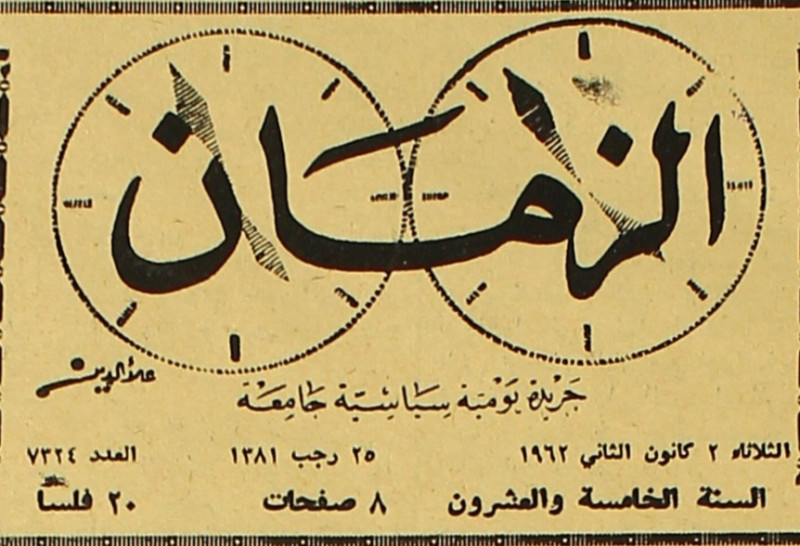 الزمان
علاء الدين
جريدة يومية سياسية جامعة
الثلاثاء ٢ كانون الثاني ١٩٦٢ ٢٥ رجب ١٣٨١ العدد ٧٣٢٤
السنة الخامسة والعشرون ٨ صفحات ٢٠ فلسا